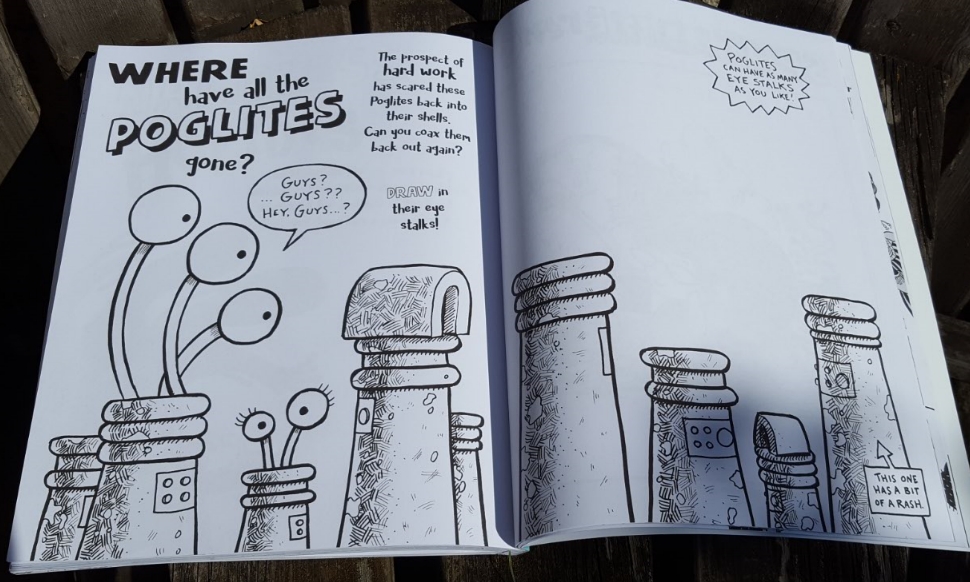 WHERE
have all the
POGLITES
gone?
The prospect of
hard work
has scared these
Poglites back into
their shells.
Can you coax them
back out again?
DRAW in
their eye
stalks!
GUYS?
... GUYS??
HEY, GUYS...?
POGLITES
CAN HAVE AS MANY
EYE STALKS
AS YOU LIKE!
THIS ONE
HAS A BIT
OF A RASH.